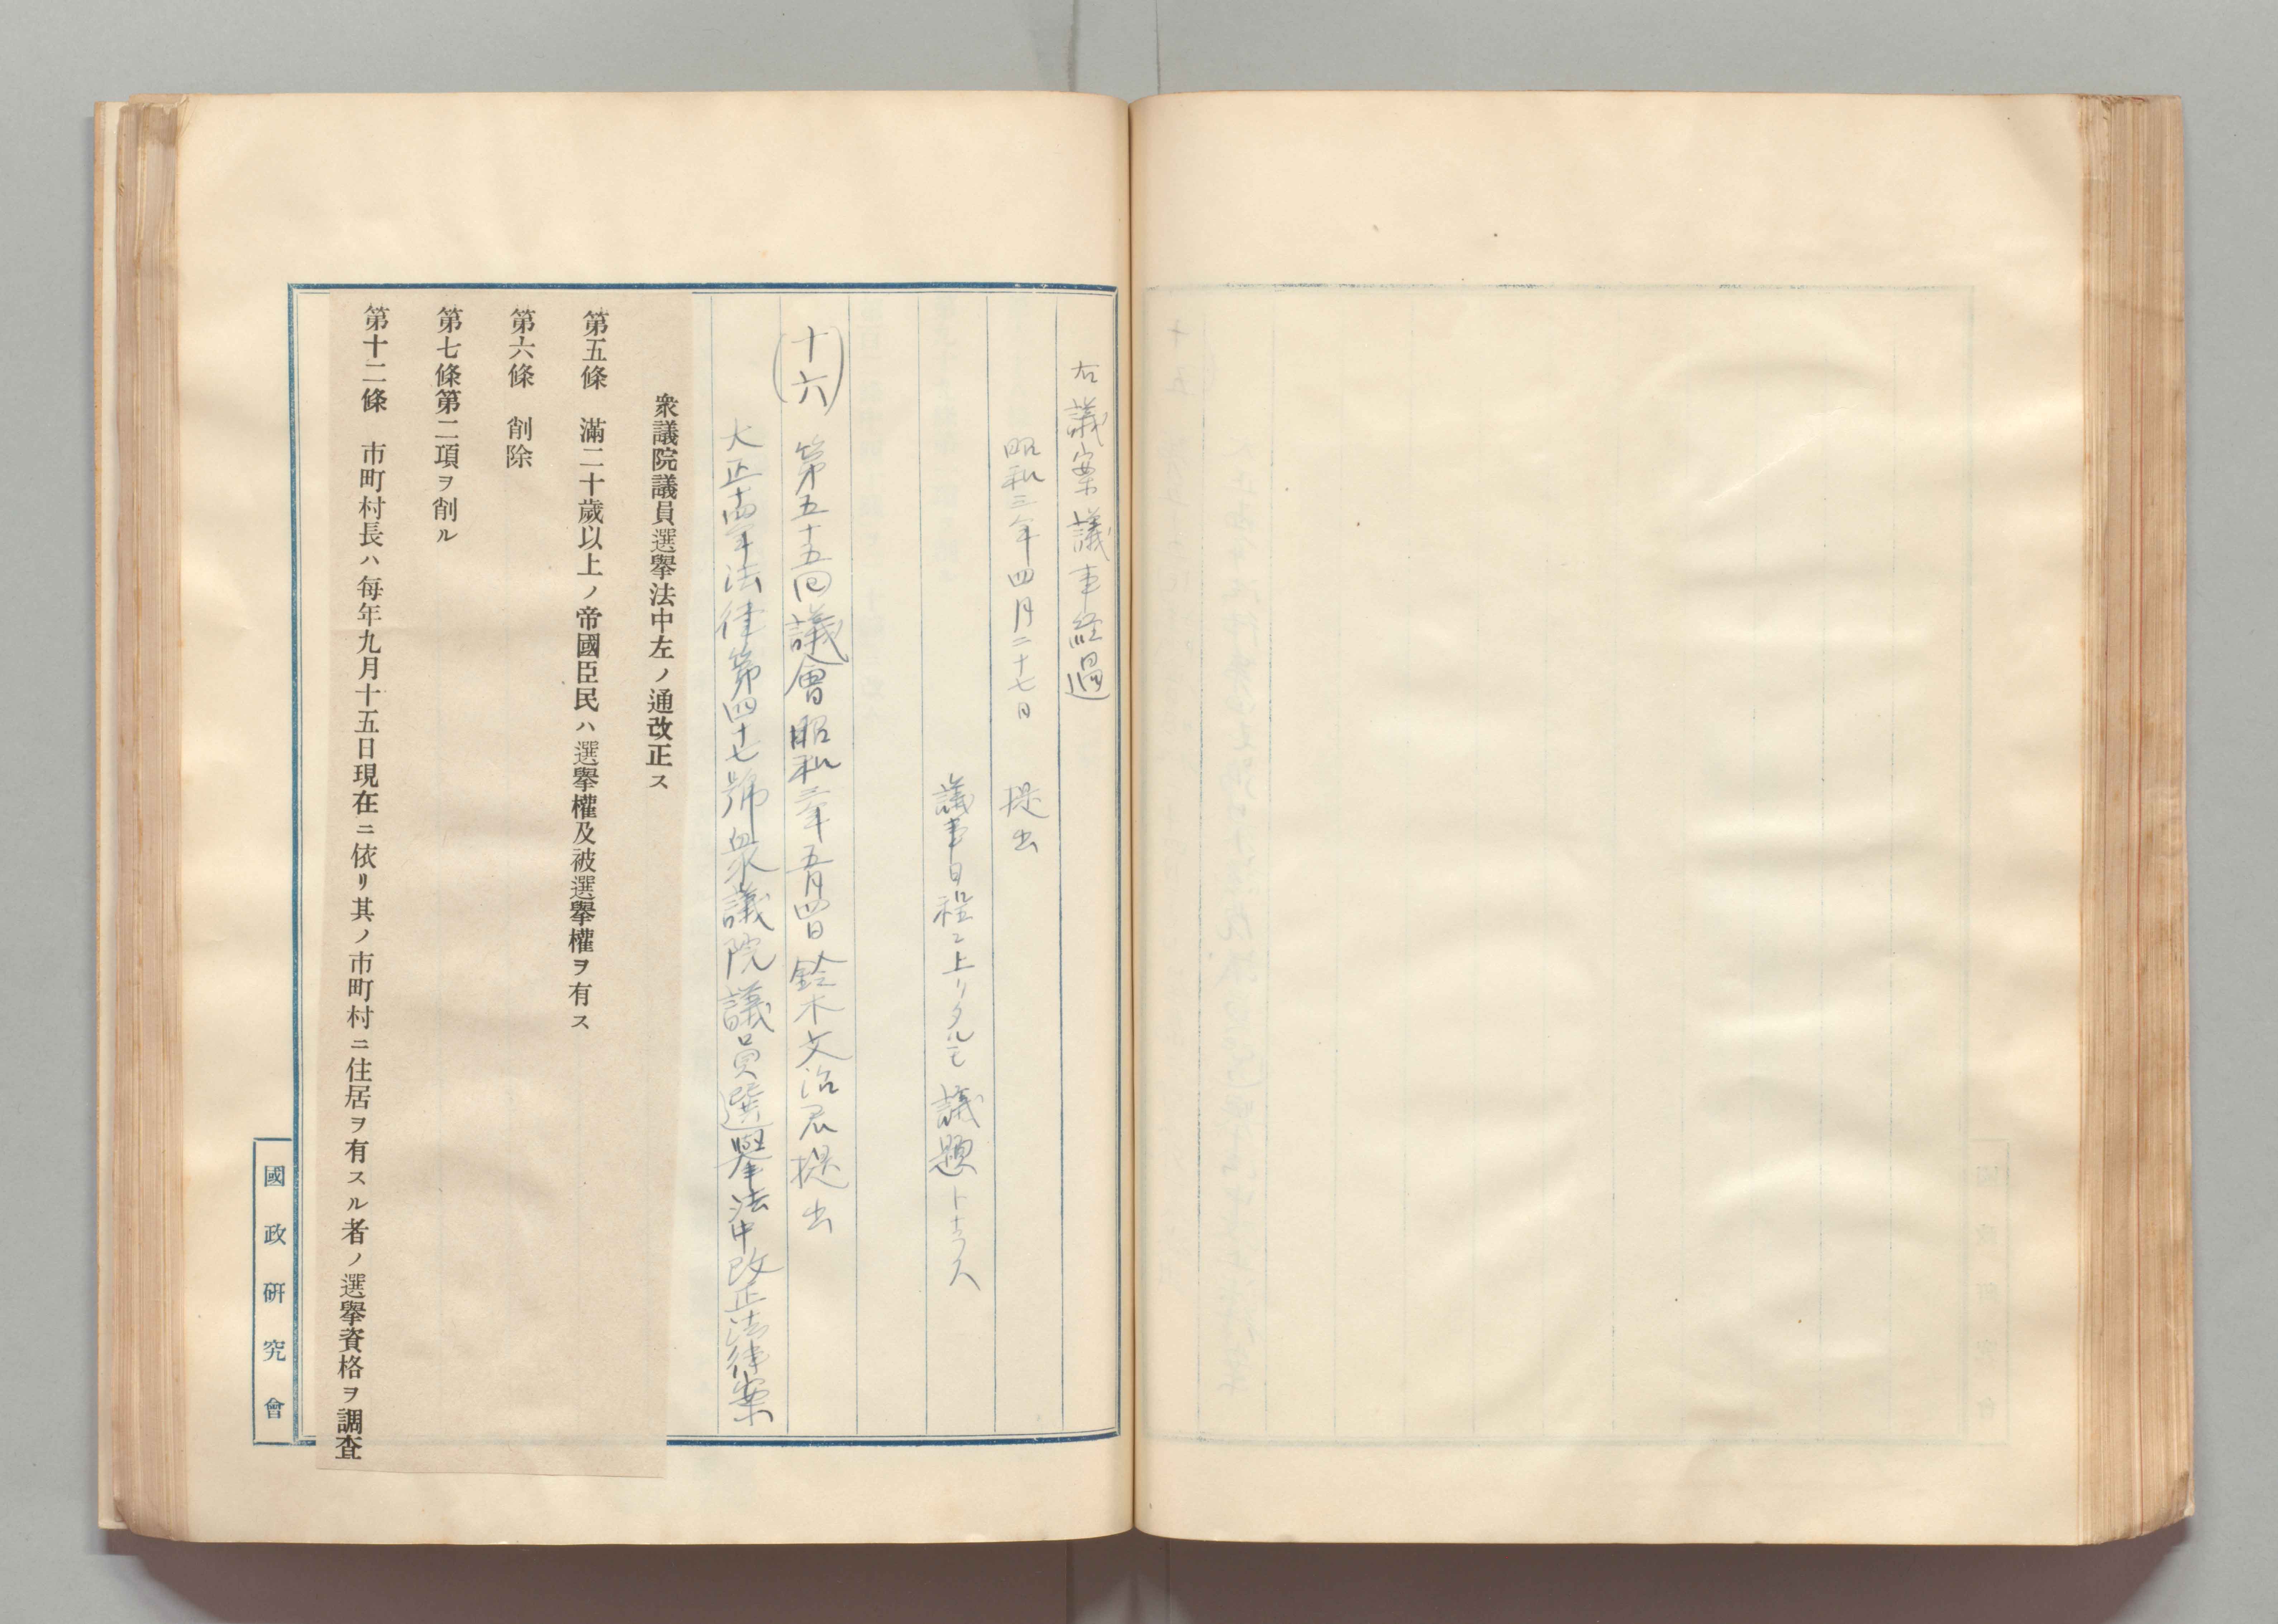 右議案議事経過
昭和三年四月二十七日 提出
議事日程ニ上リタルモ議題トナラス
(十六) 第五十五回議會昭和三年五月四日鈴木文治君提出
大正十四年法律第四十七號衆議院議員選擧法中改正法律案
衆議院議員選擧法中左ノ通改正ス
第五條 滿二十歲以上ノ帝國臣民ハ選擧權及被選擧權ヲ有ス
第六條 削除
第七條第二項ヲ削ル
第十二條 市町村長ハ每年九月十五日現在ニ依リ其ノ市町村ニ住居ヲ有スル者ノ選擧資格ヲ調査
國政硏究會